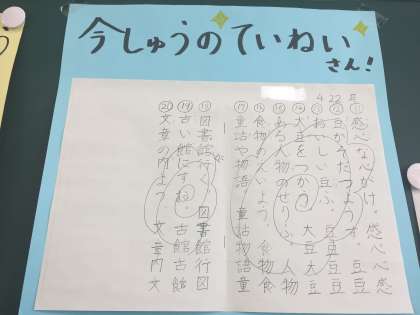 今しゅうのていねい
さん!
4 22 月
⑪感心な心がけ。感心感
⑫豆がそだつようす。豆豆豆
⑬おいしい豆ふ。豆豆豆
⑭大豆をつかう。大豆大豆
⑮ある人物のせりふ。人物
⑯食物のえいよう。食物食
⑰童話や物語。童話物語童
⑱図書館行く。図書館行図
⑲古い館にすむ。古館古館
⑳文章の内よう。文章内文